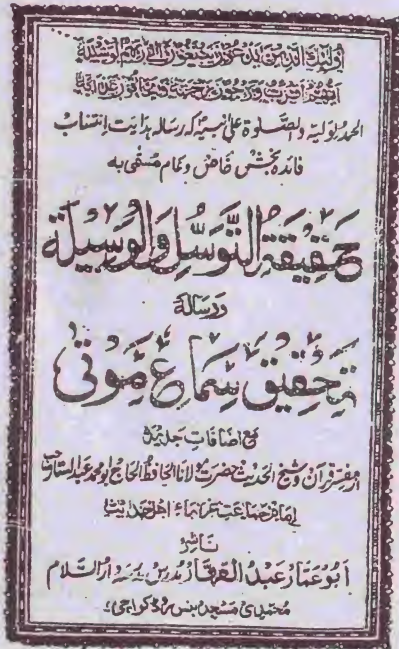 اُولٰٓئِكَ الَّذِیْنَ یَدْعُوْنَ یَبْتَغُوْنَ اِلٰی رَبِّهِمُ الْوَسِیْلَةَ
اَیُّهُمْ اَقْرَبُ وَیَرْجُوْنَ رَحْمَتَهٗ وَیَخَافُوْنَ عَذَابَهٗ
الحمد لولیہ والصلوۃ علی نبیہ کہ رسالہ ہدایت انتساب
فائدہ بخش خاص و عام مسمّی بہ
حَقِیْقَةُ التَّوَسُّلِ وَالْوَسِیْلَة
و رسالہ
تحقیق سماع موتٰی
مع اضافات جدیدہ
از مفسر قرآن و شیخ الحدیث حضرت مولانا الحافظ الحاج ابو محمد عبدالستار صاحب
امام جماعت غرباء اہل حدیث
ناشر
ابو عمار عبد القهار مدرس مدرسہ دار السلام
محمدی مسجد بنس روڈ کراچی ۱